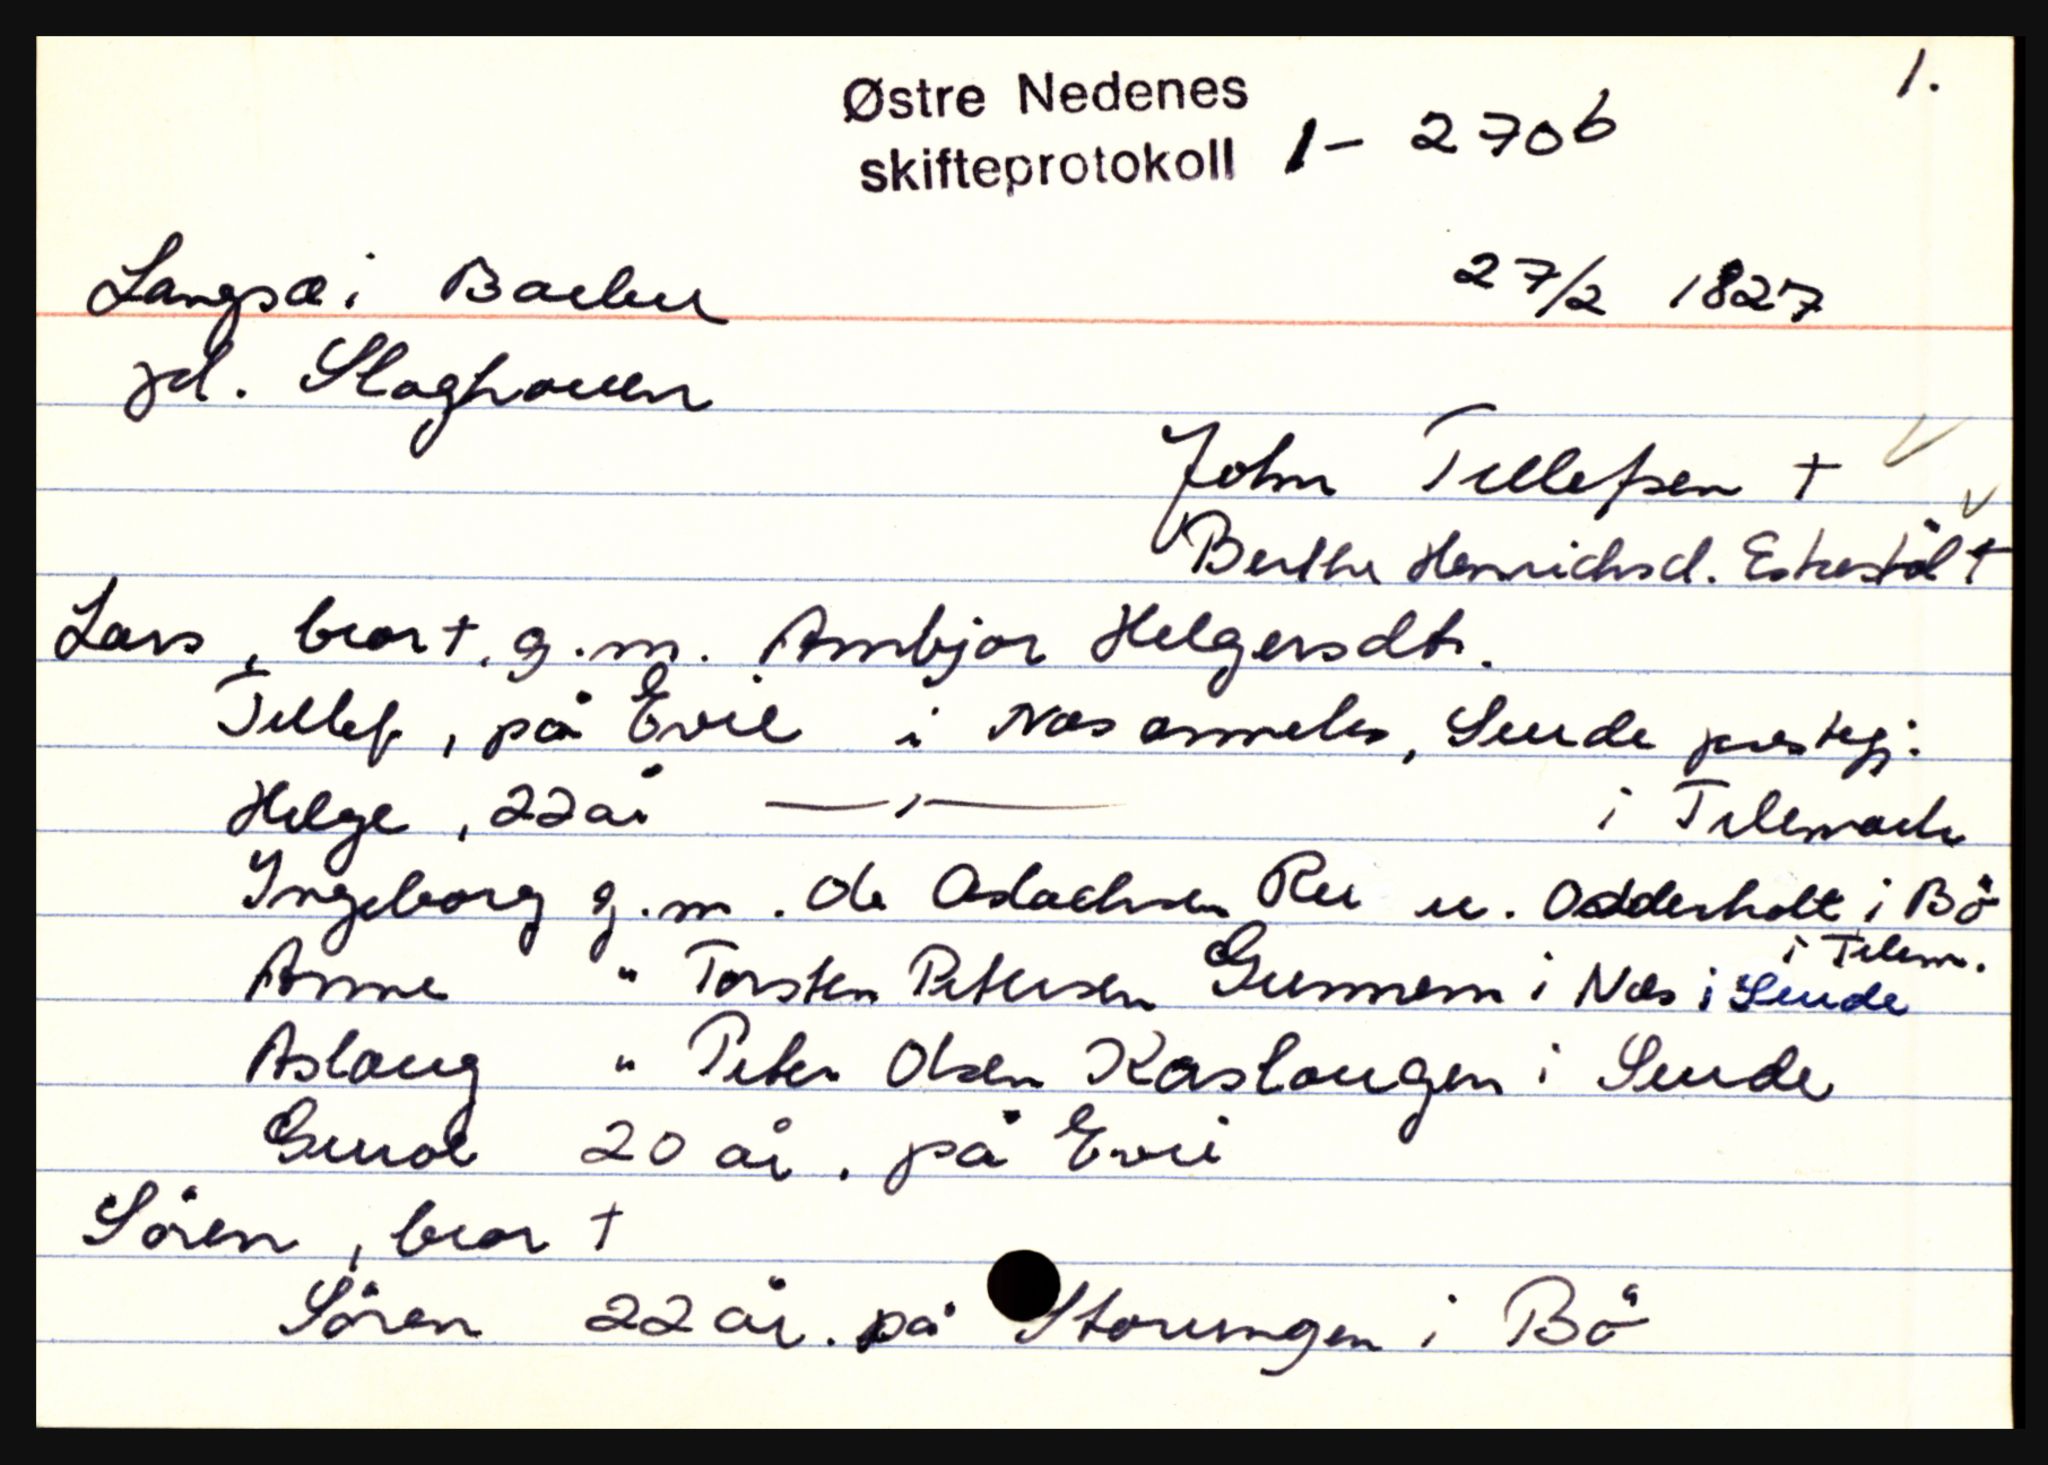 1.
Østre Nedenes
skifteprotokoll 1 - 270b
Langsæi Barbu 27/2 1827
pl. Slaghaven
John Tellefsen +
Berthe Henrichsd. Eskestøl +
Lars, bror +, g.m. Ambjør Helgersdt.
Tellef, på Evie i Næs anneks, Seude prestegj:
Helge, 22 år —"— i Telemark
Ingeborg g.m. Ole Aslachsen Rui u. Odderholt i Bö
i Telem.
Anne " Torsten Petersen Gunnem i Næs i Seude
Aslaug " Peter Olsen Kaslaugen i Seude
Guroe 20 år. på Evie
Sören, bror +
Sören 22 år. på Storungen i Bö